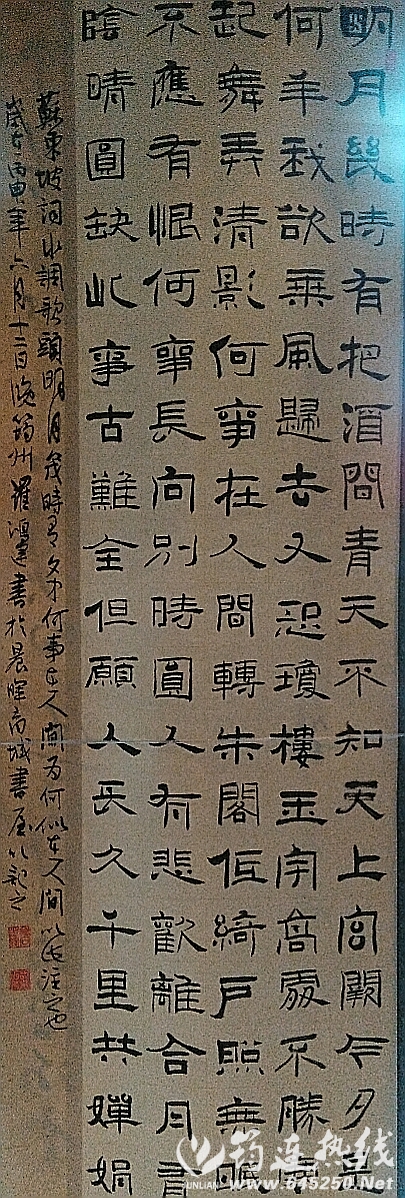 明月幾時有把酒問青天不知天上宮闕今夕是
何年我欲乘風歸去又恐瓊樓玉宇高處不勝寒
起舞弄清影何事在人間轉朱閣低綺戶照無眠
不應有恨何事長向別時圓人有悲歡離合月有
陰晴圓缺此事古難全但願人長久千里共嬋娟
蘇東坡詞水調歌頭明月幾時有何事在人間為何似在人間以此注之也
歲在丙申年六月十二日筠州羅書於晨暉商城書屋以記之
筠连热线
www.645250.Net